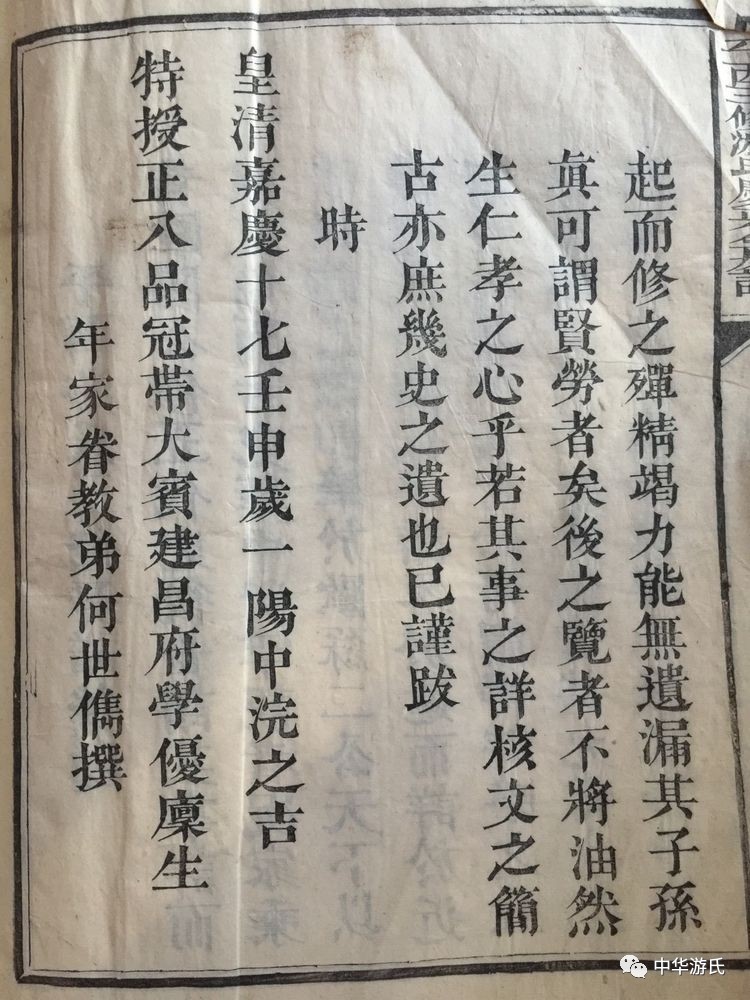 起而修之殫精竭力能無遺漏其子孫
眞可謂賢勞者矣後之覽者不將油然
生仁孝之心乎若其事之詳核文之簡
古亦庶幾史之遺也已謹跋
時
皇清嘉慶十七壬申歲一陽中浣之吉
特授正八品冠帶大賓建昌府學優廩生
年家眷教弟何世儁撰
中华游氏